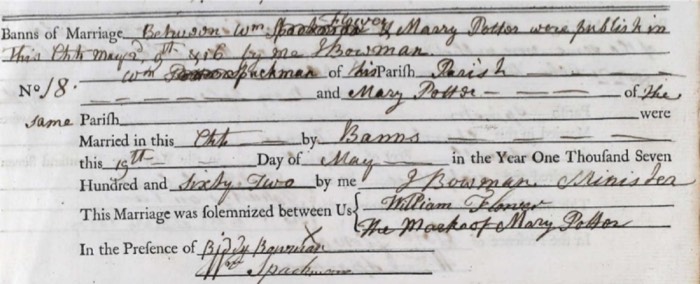 Banns of Marriage Between Wm Spackman Flower & Marry Potter were publish in
This Chh May 2d, 9th & 16 by me J Bowman
Wm Spackman of this Parish Parish
No 18. and Mary Potter of the
same Parish were
Married in this Chh by Banns
this 19th Day of May in the Year One Thousand Seven
Hundred and Sixty Two by me J Bowman Minister
This Marriage was solemnized between Us William Flower
The Marke of Mary Potter
X
In the Presence of Biddy Bowman
Wm Spackman